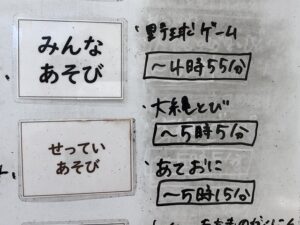 みんな
あそび
・野球ゲーム
～4時55分
・大縄とび
～5時5分
せってい
あそび
・あておに
～5時15分